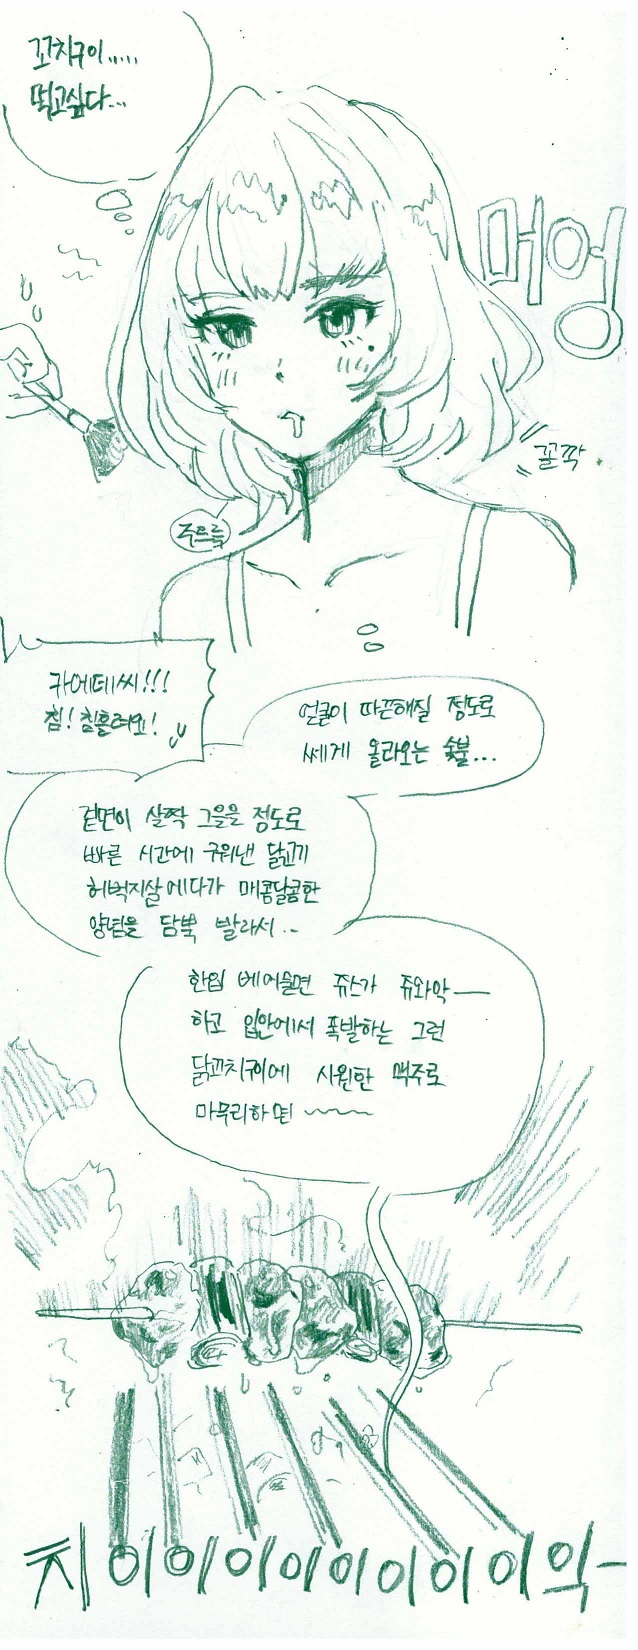 꼬치구이.....
먹고싶다...
머엉
꼴깍
주르륵
카에데씨!!!
침! 침흘려요!
얼굴이 따끈해질 정도로
쎄게 올라오는 숯불...
겉면이 살짝 그을을 정도로
빠른 시간에 구워낸 닭고기
허벅지살에다가 매콤달콤한
양념을 담뿍 발라서..
한입 베어물면 쥬스가 쥬와악——
하고 입안에서 폭발하는 그런
닭꼬치구이에 시원한 맥주로
마무리하면 ~~~
치이이이이이이이이익—